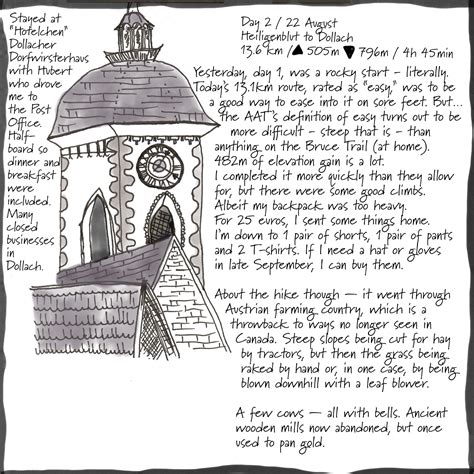 Stayed at
"Hotelchen"
Dollacher
Dorfwirsterhaus
with Hubert
who drove
me to
the Post
Office.
Half-
board so
dinner and
breakfast
were
included.
Many
closed
businesses
in
Dollach.
Day 2 / 22 August
Heiligenblut to Dollach
13.6 km / ▲ 505m ▼ 796m / 4h 45min
Yesterday, day 1, was a rocky start – literally.
Today's 13.1km route, rated as "easy," was to be
a good way to ease into it on sore feet. But...
the AAT's definition of easy turns out to be
more difficult – steep that is – than
anything on the Bruce Trail (at home).
482m of elevation gain is a lot.
I completed it more quickly than they allow
for, but there were some good climbs.
Albeit my backpack was too heavy.
For 25 euros, I sent some things home.
I'm down to 1 pair of shorts, 1 pair of pants
and 2 T-shirts. If I need a hat or gloves
in late September, I can buy them.
About the hike though — it went through
Austrian farming country, which is a
throwback to ways no longer seen in
Canada. Steep slopes being cut for hay
by tractors, but then the grass being
raked by hand or, in one case, by being
blown downhill with a leaf blower.
A few cows — all with bells. Ancient
wooden mills now abandoned, but once
used to pan gold.